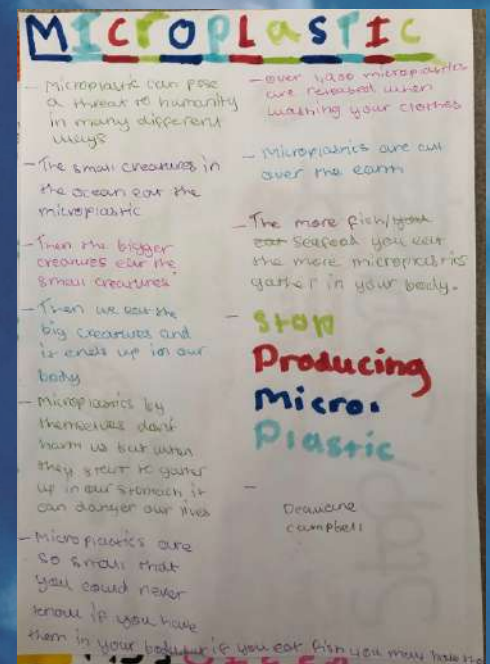 MICROPLASTIC
- Microplastic can pose
a threat to humanity
in many different
ways
- The small creatures in
the ocean eat the
microplastic
- Then the bigger
creatures eat the
small creatures
- Then we eat the
big creatures and
it ends up in our
body
- Microplastics by
themselves don't
harm us but when
they start to gather
up in our stomach it
can danger our lives
- Microplastics are
so small that
you could never
know if you have
them in your body but if you eat fish you may have the
- over microplastics
are released when
washing your clothes
- Microplastics are all
over the earth
- The more fish/
eat seafood you eat
the more microplastics
gather in your body.
- Stop
Producing
Micro.
Plastic
-
Campbell